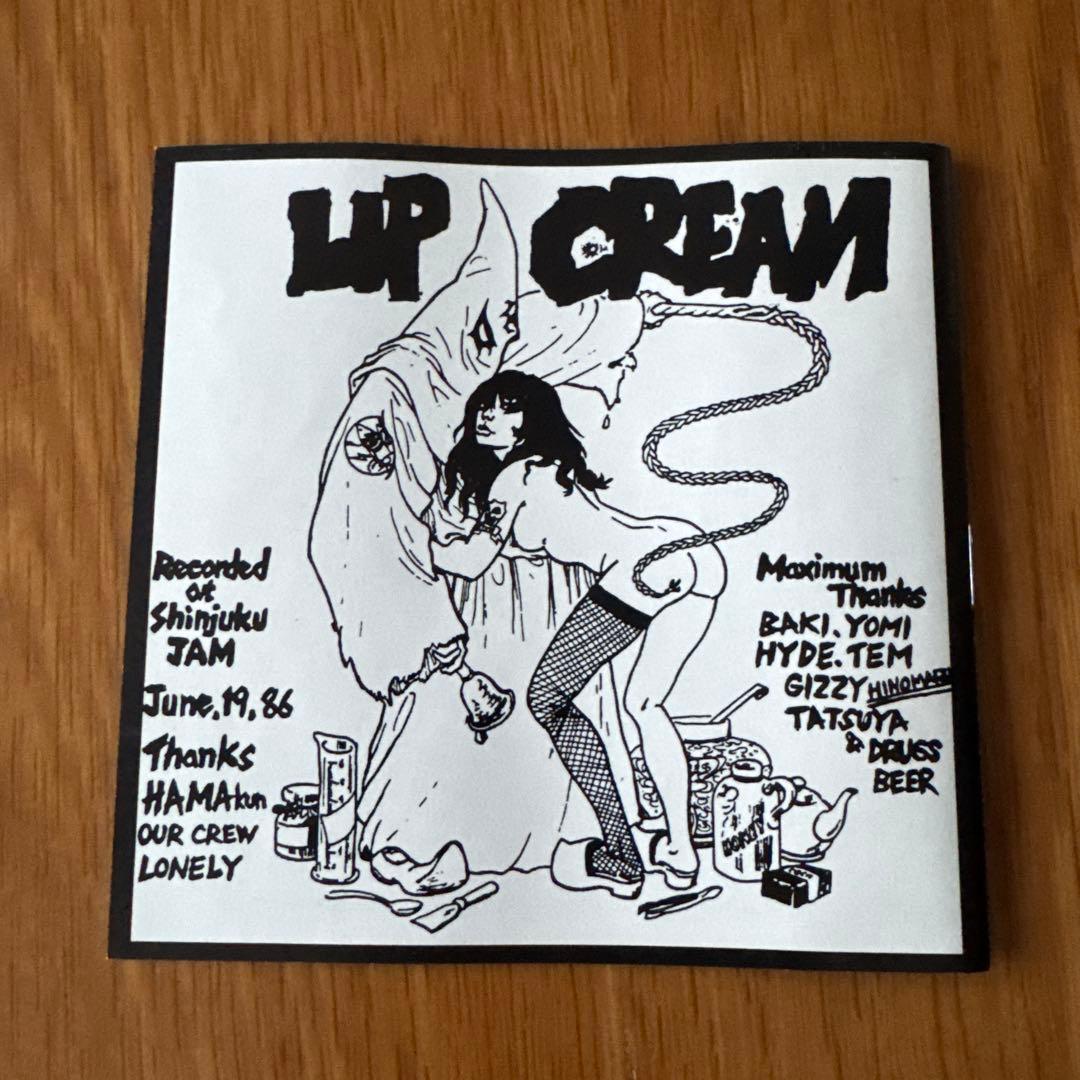 LIP CREAM
Recorded
at
Shinjuku
JAM
June, 19, 86
Thanks
HAMAkun
OUR CREW
LONELY
Maximum
Thanks
BAKI. YOMI
HYDE. TEM
GIZZY HINOMARU
TATSUYA
& DRUGS
BEER